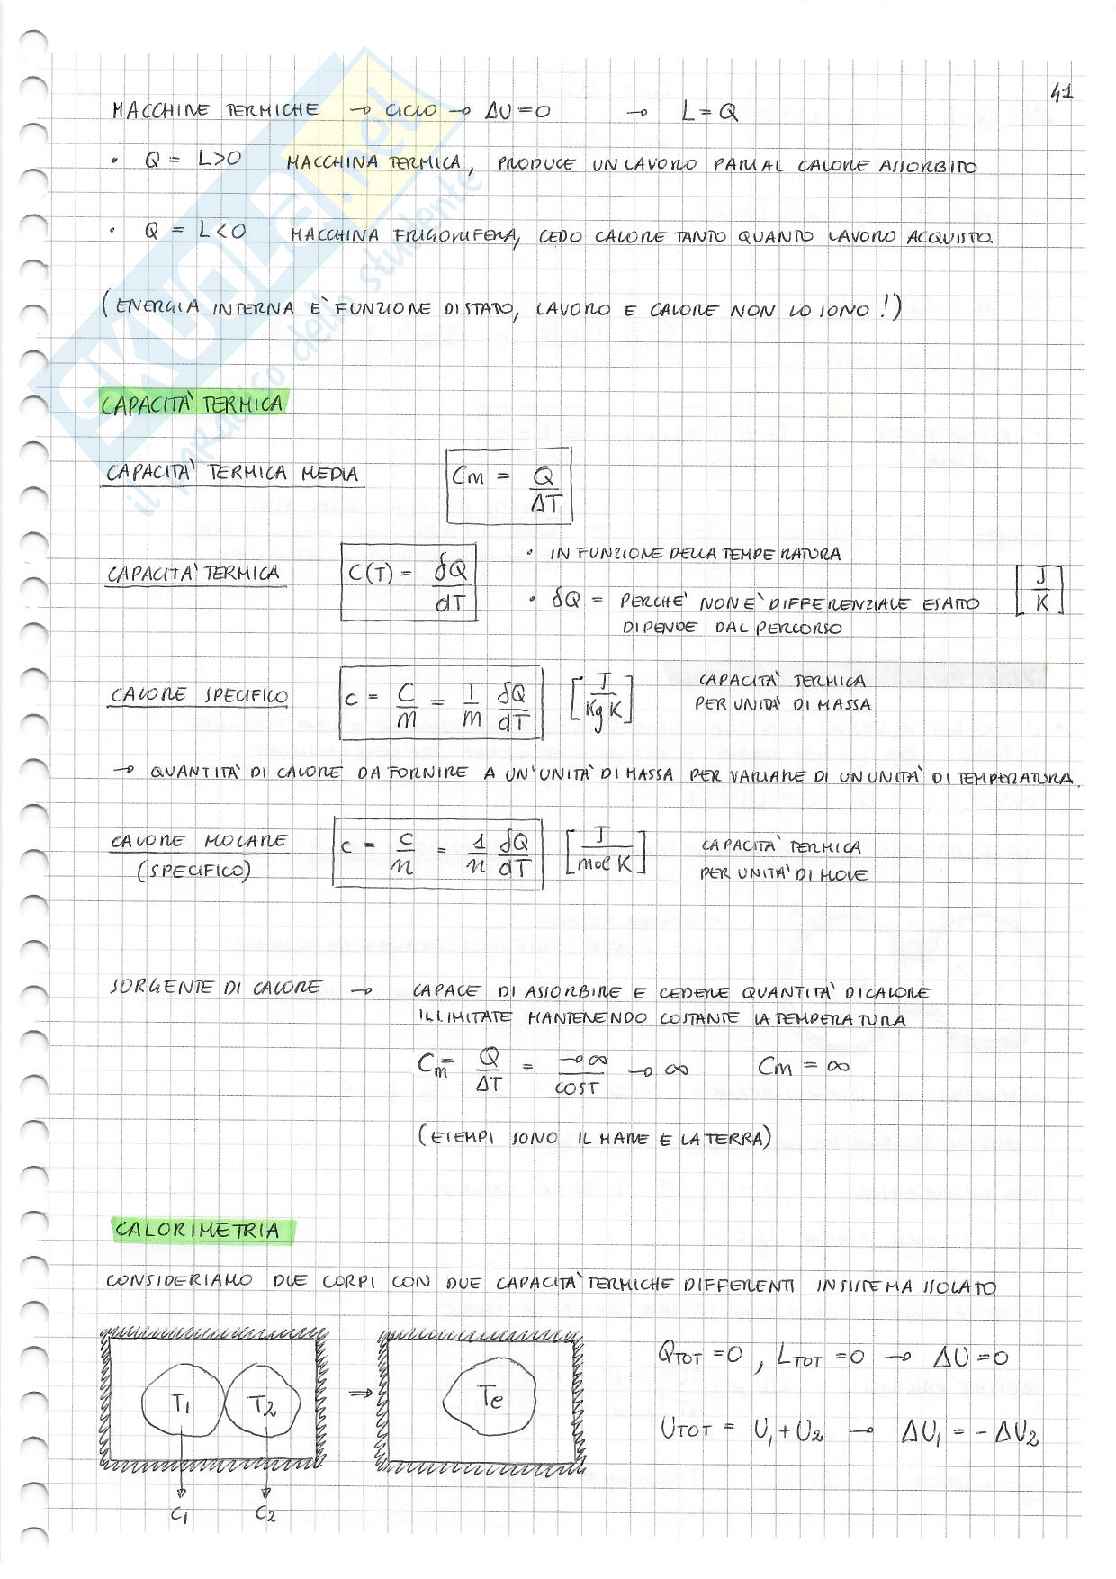 41
MACCHINE TERMICHE → CICLO → ΔU=0 → L = Q
• Q = L>0 MACCHINA TERMICA, PRODUCE UN LAVORO PARI AL CALORE ASSORBITO
• Q = L<0 MACCHINA FRIGORIFERA, CEDO CALORE TANTO QUANTO LAVORO ACQUISTO.
(ENERGIA INTERNA E' FUNZIONE DI STATO, LAVORO E CALORE NON LO SONO!)
CAPACITA' TERMICA
CAPACITA' TERMICA MEDIA Cm = Q/ΔT
CAPACITA' TERMICA C(T) = δQ/dT • IN FUNZIONE DELLA TEMPERATURA
• δQ = PERCHE' NON E' DIFFERENZIALE ESATTO [J/K]
DIPENDE DAL PERCORSO
CALORE SPECIFICO c = C/m = 1/m δQ/dT [J/Kg K] CAPACITA' TERMICA
PER UNITA' DI MASSA
→ QUANTITA' DI CALORE DA FORNIRE A UN'UNITA' DI MASSA PER VARIARE DI UN UNITA' DI TEMPERATURA.
CALORE MOLARE c = C/n = 1/n δQ/dT [J/mol K] CAPACITA' TERMICA
(SPECIFICO) PER UNITA' DI MOLE
SORGENTE DI CALORE → CAPACE DI ASSORBIRE E CEDERE QUANTITA' DI CALORE
ILLIMITATE MANTENENDO COSTANTE LA TEMPERATURA
Cm = Q/ΔT = →∞/COST → ∞ Cm = ∞
(ESEMPI SONO IL MARE E LA TERRA)
CALORIMETRIA
CONSIDERIAMO DUE CORPI CON DUE CAPACITA' TERMICHE DIFFERENTI IN SISTEMA ISOLATO
QTOT = 0, LTOT = 0 → ΔU = 0
T1 T2 → Te
UTOT = U1 + U2 → ΔU1 = - ΔU2
C1 C2
SKUOLA.net
il paradiso dello studente